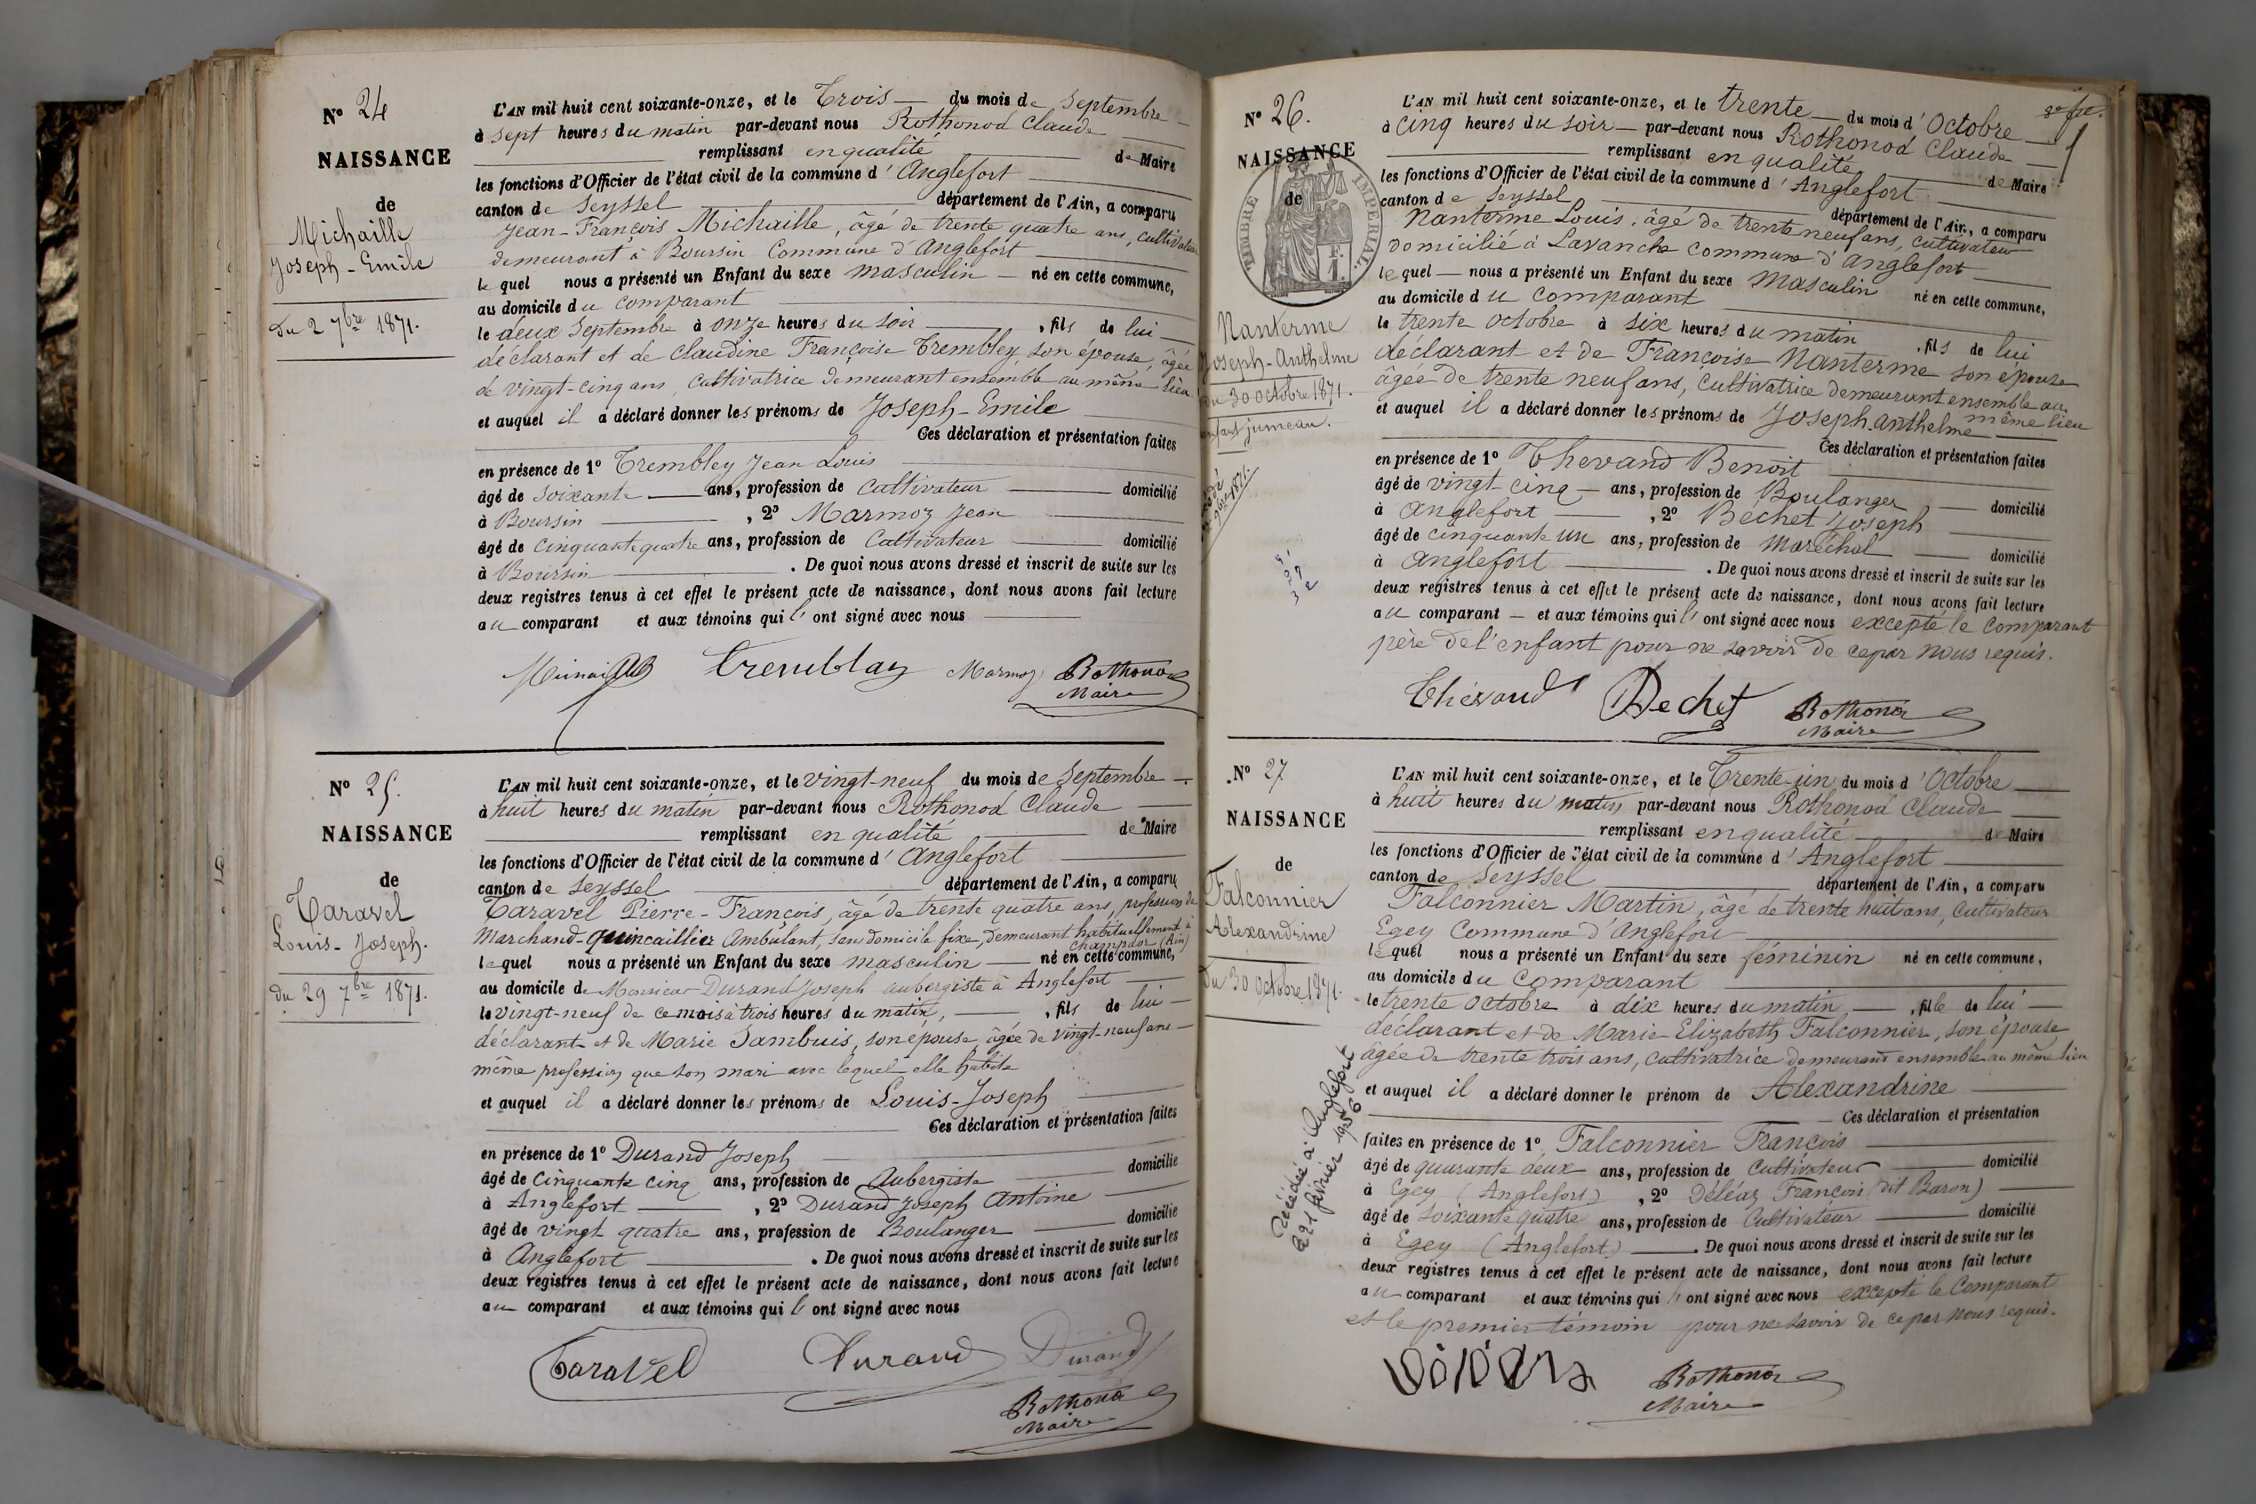 N° 24
NAISSANCE
de
Michaille
Joseph-Emile
Du 2 7bre 1871.
L'AN mil huit cent soixante-onze, et le Trois du mois de Septembre
à sept heures du matin par-devant nous Rothonod Claude
remplissant en qualité de Maire
les fonctions d'Officier de l'état civil de la commune d'Anglefort
canton de Seyssel département de l'Ain, a comparu
Jean-François Michaille, âgé de trente quatre ans, cultivateur
demeurant à Boursin Commune d'Anglefort
le quel nous a présenté un Enfant du sexe masculin né en cette commune,
au domicile du comparant
le deux Septembre à onze heures du soir, fils de lui
déclarant et de Claudine Françoise Trembley, son épouse, âgée
de vingt-cinq ans, cultivatrice demeurant ensemble au même lieu
et auquel il a déclaré donner les prénoms de Joseph-Emile
Ces déclaration et présentation faites
en présence de 1° Trembley Jean Louis
âgé de soixante ans, profession de cultivateur domicilié
à Boursin, 2° Marmoz Jean
âgé de cinquante quatre ans, profession de Cultivateur domicilié
à Boursin. De quoi nous avons dressé et inscrit de suite sur les
deux registres tenus à cet effet le présent acte de naissance, dont nous avons fait lecture
au comparant et aux témoins qui l'ont signé avec nous
Tremblay Marmoz Rothonod
Maire
N° 25.
NAISSANCE
de
Taravel
Louis-Joseph.
du 29 7bre 1871.
L'AN mil huit cent soixante-onze, et le vingt-neuf du mois de Septembre
à huit heures du matin par-devant nous Rothonod Claude
remplissant en qualité de Maire
les fonctions d'Officier de l'état civil de la commune d'Anglefort
canton de Seyssel département de l'Ain, a comparu
Taravel Pierre-François, âgé de trente quatre ans, profession de
Marchand-quincaillier Ambulant, sans domicile fixe, demeurant habituellement à
Champdor (Ain)
le quel nous a présenté un Enfant du sexe masculin né en cette commune,
au domicile de Monsieur Durand Joseph aubergiste à Anglefort
le vingt-neuf de ce mois à trois heures du matin, fils de lui
déclarant et de Marie Sambuis, son épouse, âgée de vingt-neuf ans
même profession que son mari avec lequel elle habite
et auquel il a déclaré donner les prénoms de Louis-Joseph
Ces déclaration et présentation faites
en présence de 1° Durand Joseph
âgé de Cinquante cinq ans, profession de Aubergiste domicilié
à Anglefort, 2° Durand Joseph Antoine
âgé de vingt quatre ans, profession de Boulanger domicilié
à Anglefort. De quoi nous avons dressé et inscrit de suite sur les
deux registres tenus à cet effet le présent acte de naissance, dont nous avons fait lecture
au comparant et aux témoins qui l'ont signé avec nous
Taravel Durand Durand
Rothonod
Maire
N° 26.
NAISSANCE
de
TIMBRE IMPERIAL
1 F.
Nanterme
Joseph-Anthelme
du 30 octobre 1871.
enfant jumeau.
L'AN mil huit cent soixante-onze, et le trente du mois d'Octobre
à cinq heures du soir par-devant nous Rothonod Claude
remplissant en qualité de Maire
les fonctions d'Officier de l'état civil de la commune d'Anglefort
canton de Seyssel département de l'Ain, a comparu
Nanterme Louis, âgé de trente neuf ans, cultivateur
domicilié à Lavanche commune d'Anglefort
le quel nous a présenté un Enfant du sexe Masculin né en cette commune,
au domicile du comparant
le trente octobre à six heures du matin, fils de lui
déclarant et de Françoise Nanterme son épouse
âgée de trente neuf ans, cultivatrice demeurant ensemble au
même lieu
et auquel il a déclaré donner les prénoms de Joseph-anthelme
Ces déclaration et présentation faites
en présence de 1° Thevand Benoit
âgé de vingt cinq ans, profession de Boulanger domicilié
à Anglefort, 2° Béchet Joseph
âgé de cinquante un ans, profession de Maréchal domicilié
à Anglefort. De quoi nous avons dressé et inscrit de suite sur les
deux registres tenus à cet effet le présent acte de naissance, dont nous avons fait lecture
au comparant et aux témoins qui l'ont signé avec nous excepté le comparant
père de l'enfant pour ne savoir de ce par nous requis.
Thévand Bechet Rothonod
Maire
N° 27
NAISSANCE
de
Falconnier
Alexandrine
Du 30 Octobre 1871.
Décédée à Anglefort
le 21 février 1956
L'AN mil huit cent soixante-onze, et le Trente-un du mois d'Octobre
à huit heures du matin par-devant nous Rothonod Claude
remplissant en qualité de Maire
les fonctions d'Officier de l'état civil de la commune d'Anglefort
canton de Seyssel département de l'Ain, a comparu
Falconnier Martin, âgé de trente huit ans, Cultivateur
Egey Commune d'Anglefort
lequel nous a présenté un Enfant du sexe féminin né en cette commune,
au domicile du Comparant
le trente octobre à dix heures du matin, fille de lui
déclarant et de Marie-Elizabeth Falconnier, son épouse
âgée de trente trois ans, cultivatrice demeurant ensemble au même lieu
et auquel il a déclaré donner le prénom de Alexandrine
Ces déclaration et présentation
faites en présence de 1° Falconnier François
âgé de quarante deux ans, profession de Cultivateur domicilié
à Egey (Anglefort), 2° Déléaz François (dit Baron)
âgé de soixante quatre ans, profession de Cultivateur domicilié
à Egey (Anglefort). De quoi nous avons dressé et inscrit de suite sur les
deux registres tenus à cet effet le présent acte de naissance, dont nous avons fait lecture
au comparant et aux témoins qui l'ont signé avec nous excepté le Comparant
et le premier témoin pour ne savoir de ce par nous requis.
Rothonod
Maire